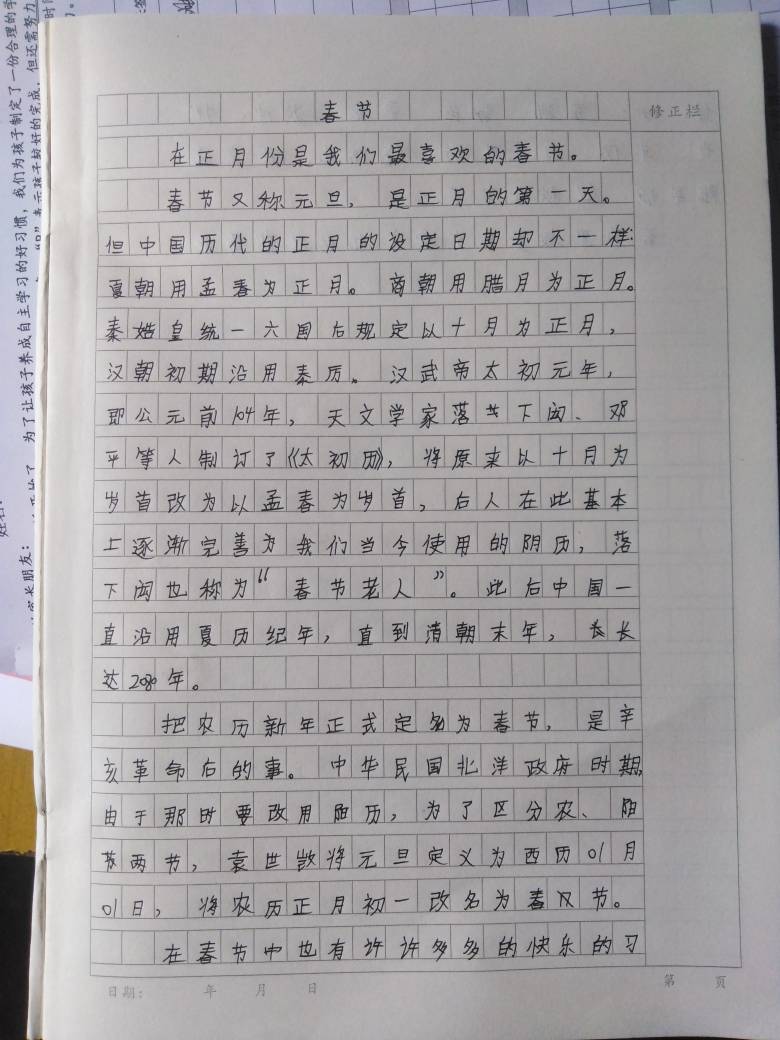 为了让孩子养成自主学习的好习惯，我们为孩子制定了一份合理的学
春节
修正栏
在正月份是我们最喜欢的春节。
春节又称元旦，是正月的第一天。
但中国历代的正月的设定日期却不一样：
夏朝用孟春为正月。商朝用腊月为正月。
秦始皇统一六国后规定以十月为正月，
汉朝初期沿用秦历。汉武帝太初元年，
即公元前104年，天文学家落下闳、邓
平等人制订了《太初历》，将原来以十月为
岁首改为以孟春为岁首，后人在此基本
上逐渐完善为我们当今使用的阴历，落
下闳也称为“春节老人”。此后中国一
直沿用夏历纪年，直到清朝末年，长长
达2080年。
把农历新年正式定名为春节，是辛
亥革命后的事。中华民国北洋政府时期，
由于那时要改用阳历，为了区分农、阳
两节，袁世凯将元旦定义为西历01月
01日，将农历正月初一改名为春节。
在春节中也有许许多多的快乐的习
日期： 年 月 日
第 页